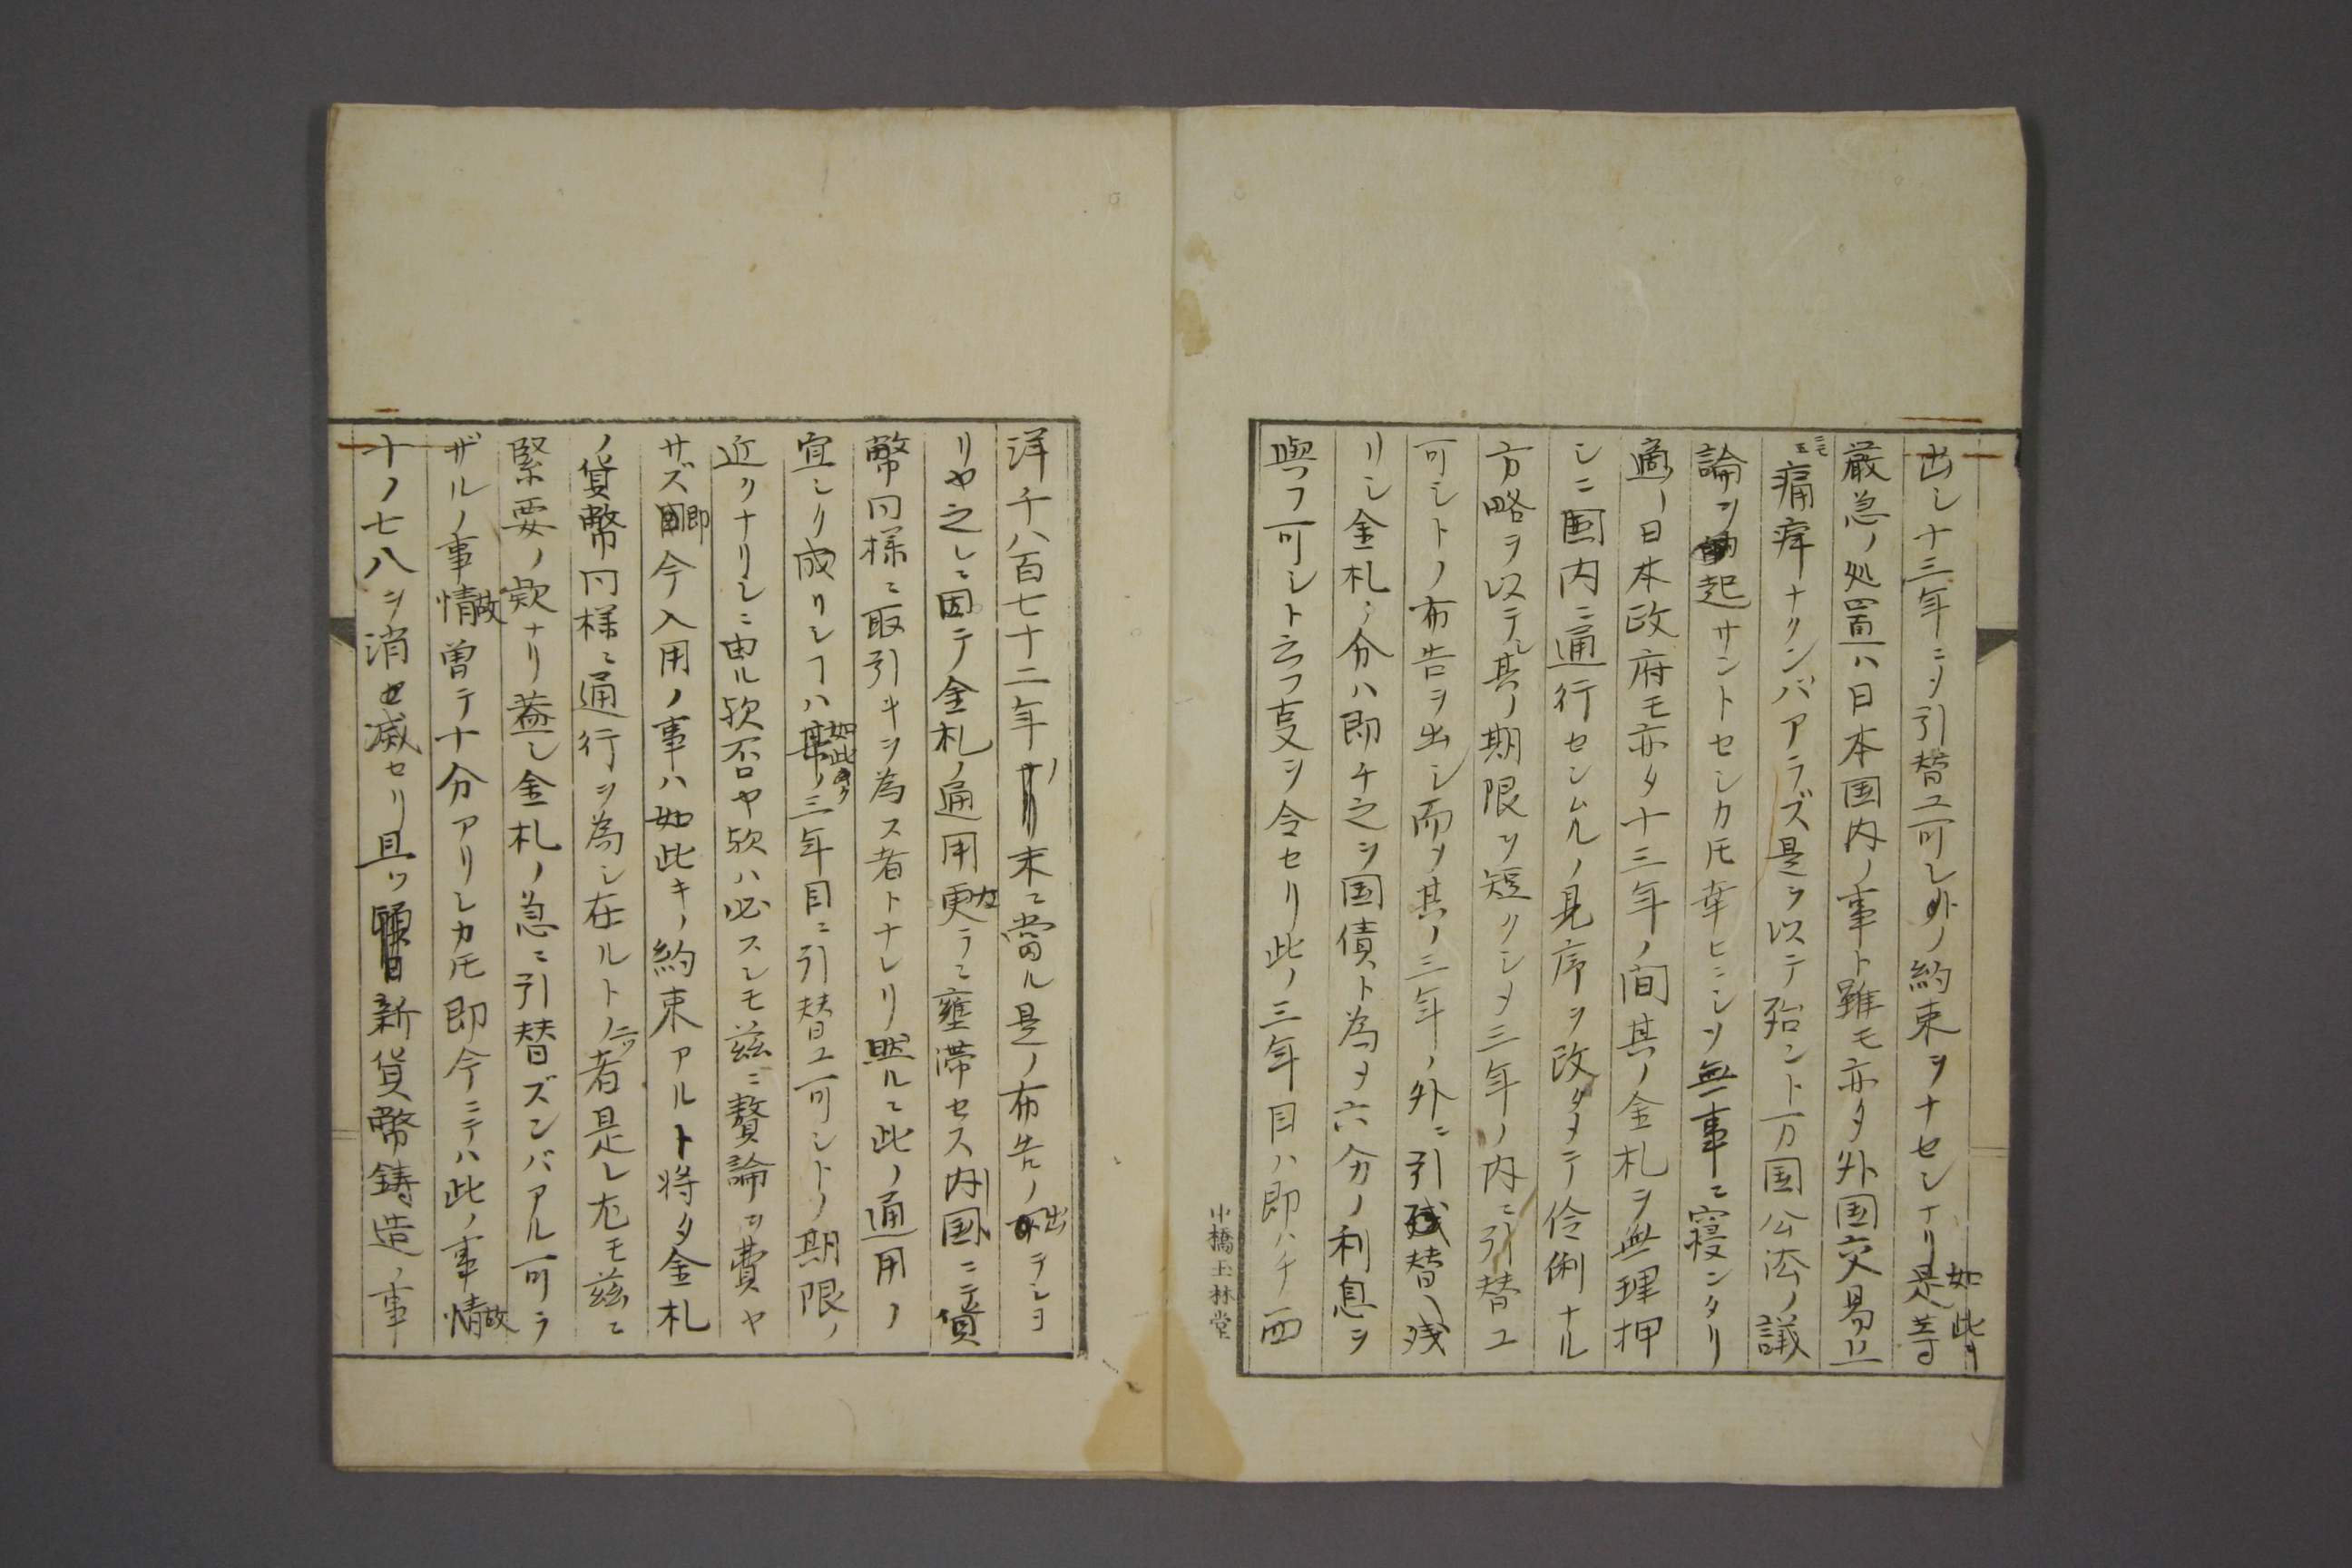 出シ十三年ニシ引替ユ可シ外ノ約束ヲナセシナリ是等
如此キ
厳急ノ処置ハ日本国内ノ事ト雖モ亦タ外国交易上
ニモ
痛痒ナクンバアラズ是ヲ以テ殆ント万国公法ノ議
論ヲ起サントセシカ𪜈幸ヒニシツ無事ニ寝ンタリ
適ー日本政府モ亦タ十三年ノ間其ノ金札ヲ無理押
シニ国内ニ通行センムルノ見序ヲ改タメテ伶俐ナル
方略ヲ以テシ其ノ期限ヲ短クシメ三年ノ内ニ引替ユ
可シトノ布告ヲ出シ而ノ其ノ三年ノ外ニ引替ヘ残
リシ金札ノ分ハ即チ之ヲ国債ト為メ六分ノ利息ヲ
與フ可シト云フ支ヲ令セリ此ノ三年目ハ即ハチ西
小橋玉林堂
洋千八百七十二年ノ末ニ當ル是ノ布告ノ出テショ
リヤ之レニ因テ金札ノ通用更ラニ壅滞セス内国ニテ貨
幣同様ニ取引キヲ為ス者トナレリ然ルニ此ノ通用ノ
宜シク成リシフハ三年目ニ引替ユ可シトノ期限ノ
如此キク
近クナリシニ由ル欤否ヤ欤ハ必スシモ茲ニ贅論ヲ費ヤ
サズ即今入用ノ事ハ如此キノ約束アルト将タ金札
ノ貨幣同様ニ通行ヲ為シ在ルトノ者是レ尤モ茲ニ
緊要ノ欵ナリ蓋シ金札ノ急ニ引替ズンバアル可ラ
ザルノ事情故曽テ十分アリシカ𪜈即今ニテハ此ノ事情故
十ノ七八ヲ消滅セリ且ツ新貨幣鋳造ノ事